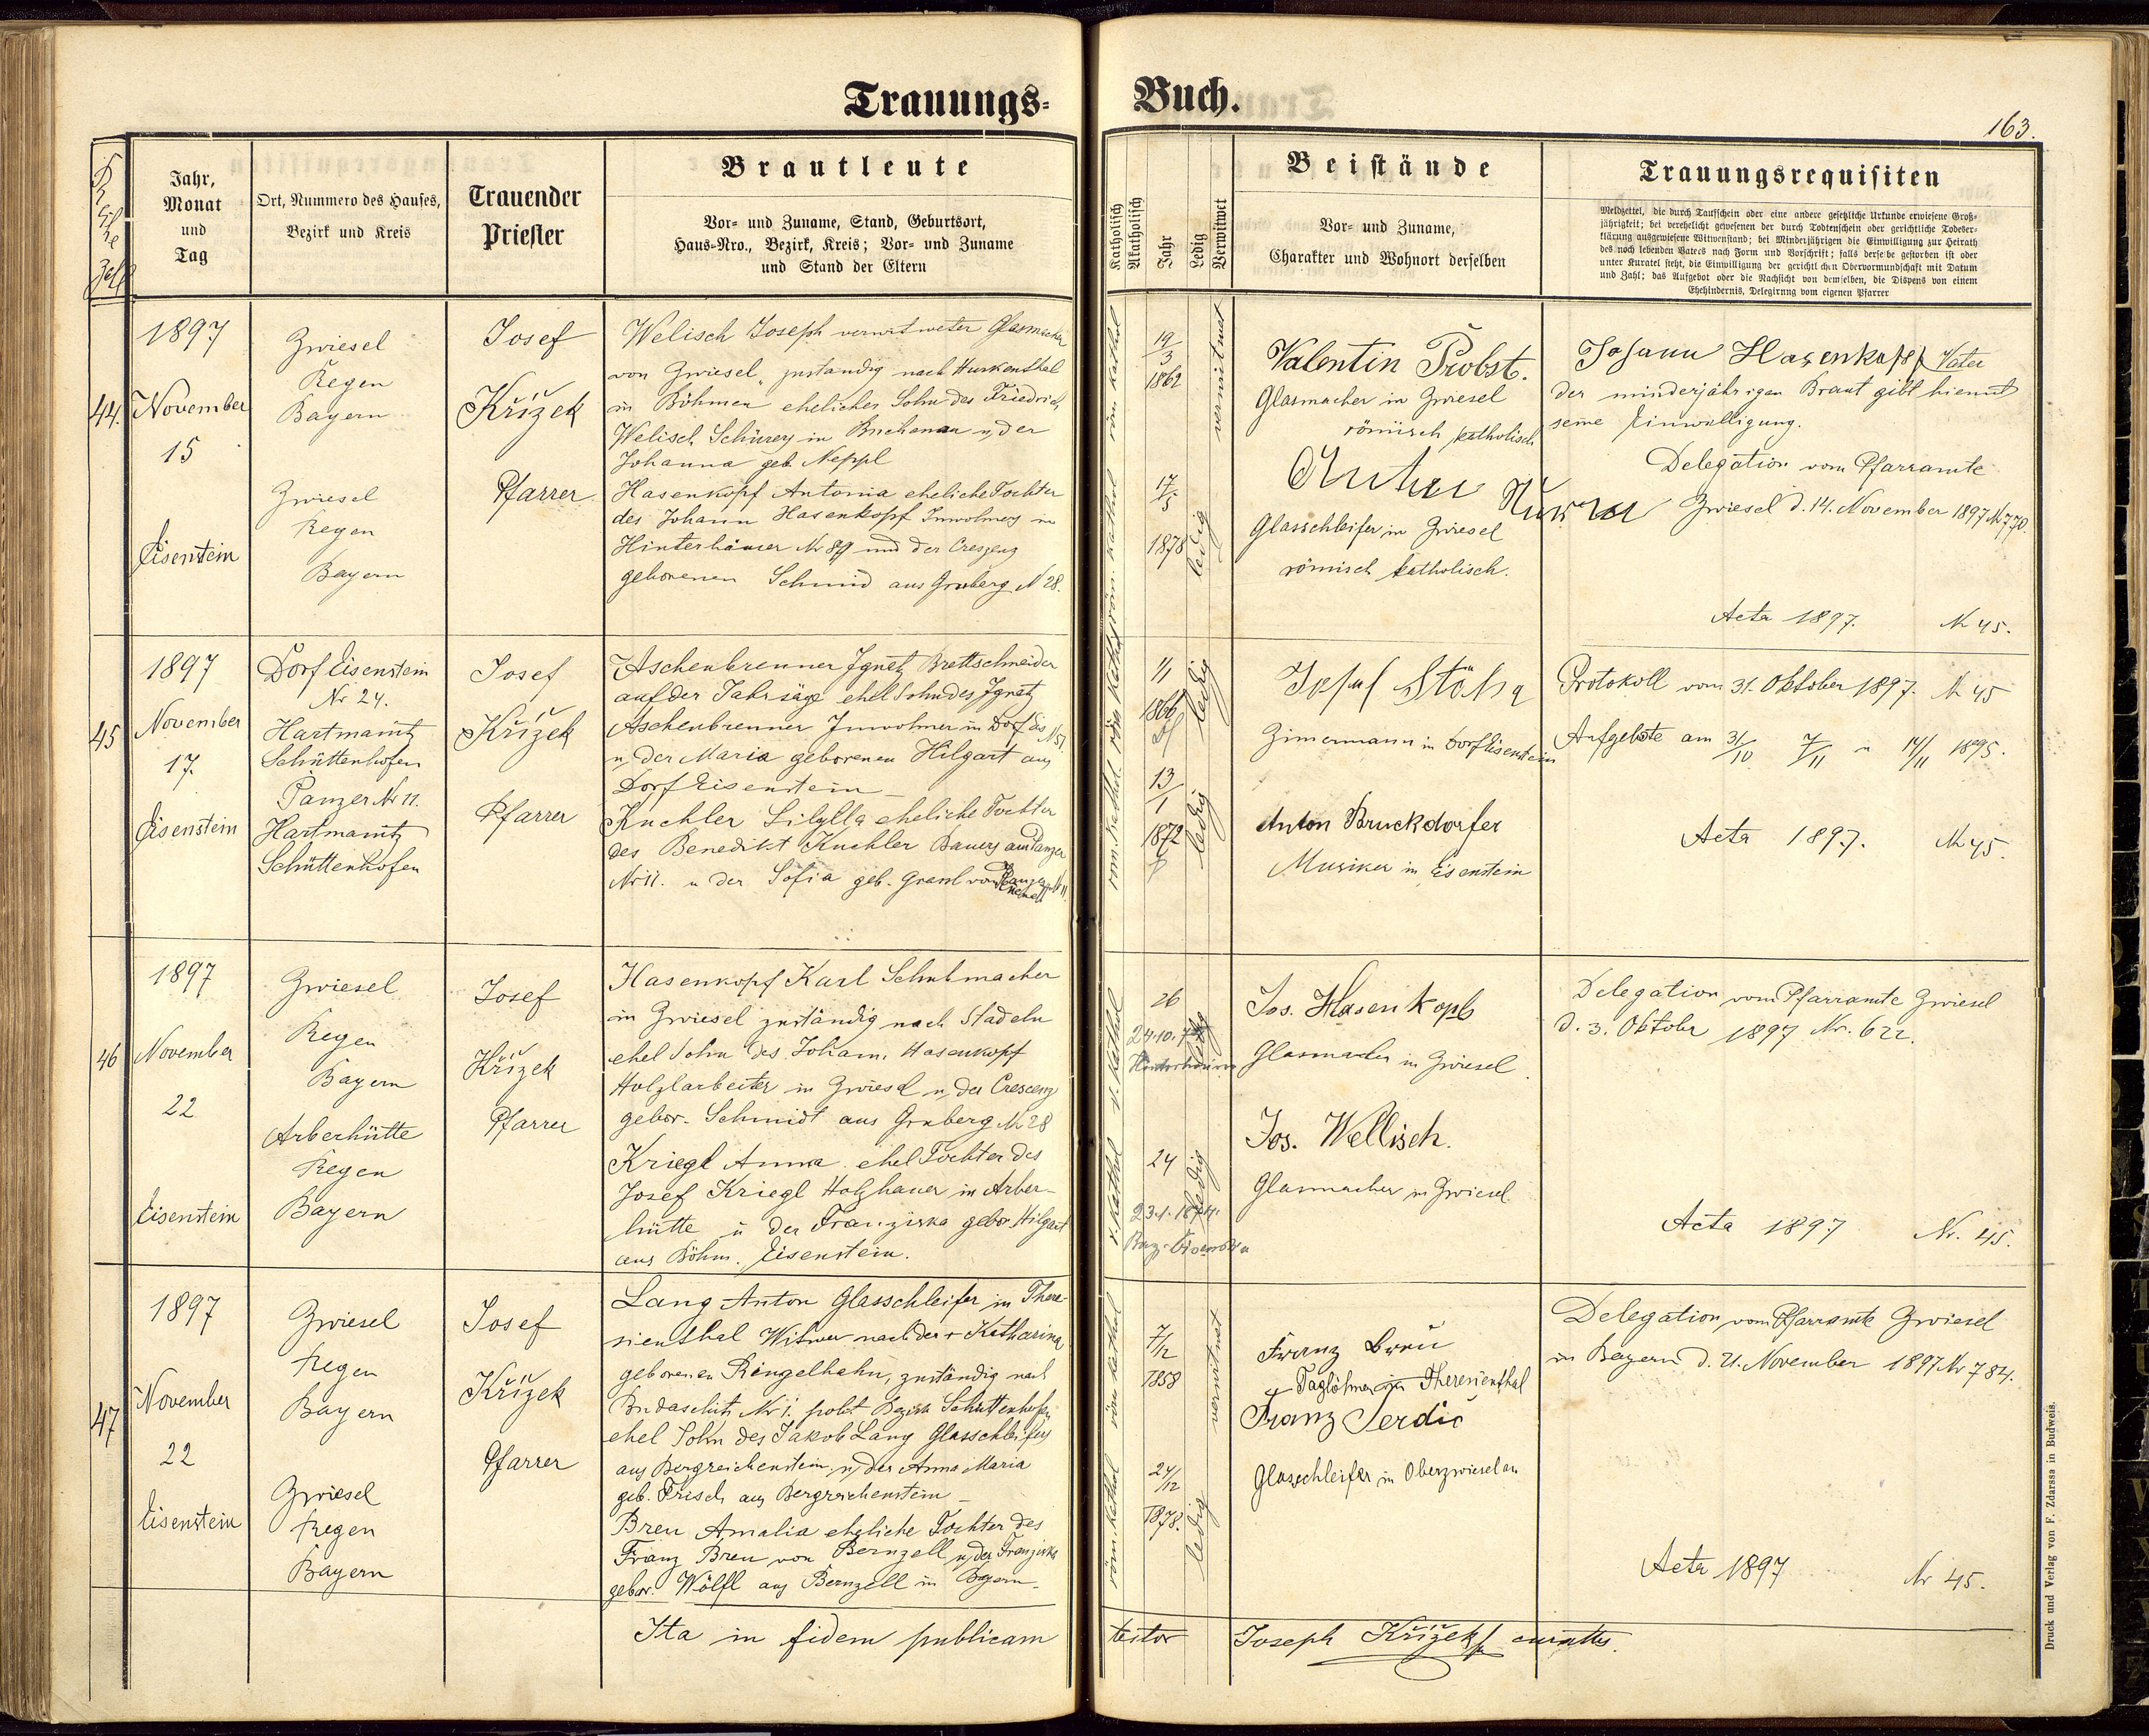 Trauungs-
Buch.
163.
Reihe Zahl
Jahr,
Monat
und
Tag
Ort, Nummero des Hauses,
Bezirk und Kreis
Trauender
Priester
Brautleute
Vor- und Zuname, Stand, Geburtsort,
Haus-Nro., Bezirk, Kreis; Vor- und Zuname
und Stand der Eltern
Katholisch
Akatholisch
Jahr
Ledig
Verwitwet
Beistände
Vor- und Zuname,
Charakter und Wohnort derselben
Trauungsrequisiten
Meldzettel, die durch Taufschein oder eine andere gesetzliche Urkunde erwiesene Groß-
jährigkeit; bei verehelicht gewesenen der durch Todtenschein oder gerichtliche Todeser-
klärung ausgewiesene Witwenstand; bei Minderjährigen die Einwilligung zur Heirath
des noch lebenden Vaters nach Form und Vorschrift; falls derselbe gestorben ist oder
unter Kuratel steht, die Einwilligung der gerichtlichen Obervormundschaft mit Datum
und Zahl; das Aufgebot oder die Nachsicht von demselben, die Dispens von einem
Ehehindernis, Delegirung vom eigenen Pfarrer
44.
1897
November
15
Eisenstein
Zwiesel
Regen
Bayern
Zwiesel
Regen
Bayern
Josef
Křížek
Pfarrer
Welisch Joseph verwitweter Glasmacher
von Zwiesel, zuständig nach Hurkenthal
in Böhmen ehelicher Sohn des Friedrich
Welisch Schürers in Buchenau u. der
Johanna geb. Neppl
Hasenkopf Antonia eheliche Tochter
des Johann Hasenkopf Inwohners in
Hinterhäuser Nr 89 und der Creszenz
geborenen Schmid aus Gruberg N 28.
röm kathol
19/3
1862
verwitwet
röm. kathol
17/5
1878
ledig
Valentin Probst.
Glasmacher in Zwiesel
römisch katholisch
Anton
Glasschleifer in Zwiesel
römisch katholisch.
Johann Hasenkopf Vater
der minderjährigen Braut gibt hiemit
seine Einwilligung.
Delegation vom Pfarramte
Zwiesel d. 14. November 1897 N 770.
Acta 1897. N 45.
45
1897
November
17.
Eisenstein
Dorf Eisenstein
Nr 24.
Hartmanitz
Schüttenhofen
Panzer Nr 11.
Hartmanitz
Schüttenhofen
Josef
Křížek
Pfarrer
Aschenbrenner Ignatz Brettschneider
auf der Jahrsäge ehel Sohn des Ignatz
Aschenbrenner Inwohner in Dorf Eis N 51
u. der Maria geborenen Hilgart aus
Dorf Eisenstein
Kuchler Sibylla eheliche Tochter
des Benedikt Kuchler Bauers am Panzer
Nr 11. u der Sofia geb. Grassl von Panzer N 11.
röm kathol
1866
ledig
röm kathol
13/1
1872
ledig
Josef Stöhr
Zimermann in Dorf Eisenstein
Anton Bruckdorfer
Musiker in Eisenstein
Protokoll vom 31. Oktober 1897. N 45
Aufgebote am 31/10 7/11 u 14/11 1895.
Acta 1897. N 45.
46
1897
November
22
Eisenstein
Zwiesel
Regen
Bayern
Arberhütte
Regen
Bayern
Josef
Křížek
Pfarrer
Hasenkopf Karl Schuhmacher
in Zwiesel zuständig nach Stadeln
ehel Sohn des Johann Hasenkopf
Holzlarbeiter in Zwiesel u. der Crescenz
gebor. Schmidt aus Gruberg N 28
Kriegl Anna ehel Tochter des
Josef Kriegl Holzhauer in Arber-
hütte u der Franziska gebor Hilgart
aus Böhm. Eisenstein.
r. kathol
26
ledig
r. kathol
24
23.1.1874.
ledig
Jos. Hasenkopf
Glasmacher in Zwiesel
Jos. Wellisch.
Glasmacher in Zwiesel
Delegation vom Pfarramte Zwiesel
d. 3. Oktober 1897 Nr. 622.
Acta 1897 Nr. 45.
47
1897
November
22
Eisenstein
Zwiesel
Regen
Bayern
Zwiesel
Regen
Bayern
Josef
Křížek
Pfarrer
Lang Anton Glasschleifer in There-
sienthal Witwer nach der + Katharina
geborenen Ringelhahn, zuständig nach
Nr 1. polit Bezirk Schüttenhofen
ehel Sohn des Jakob Lang Glasschleifers
aus Bergreichenstein u. der Anna Maria
geb. Frisch aus Bergreichenstein
Breu Amalia eheliche Tochter des
Franz Breu von Bernzell u. der Franziska
gebor. Wölfl aus Bernzell in Bayern.
röm kathol
7/12
1858
verwitwet
röm. kathol
24/12
1878.
ledig
Franz Breu
Taglöhner in Theresienthal
Franz Serdič
Glasschleifer in Oberzwieselau
Delegation vom Pfarramte Zwiesel
in Bayern d. 21. November 1897 Nr 784.
Acta 1897 Nr 45.
Ita in fidem publicam
testor
Joseph Křížek curatus.
Druck und Verlag von F. Zdarssa in Budweis.